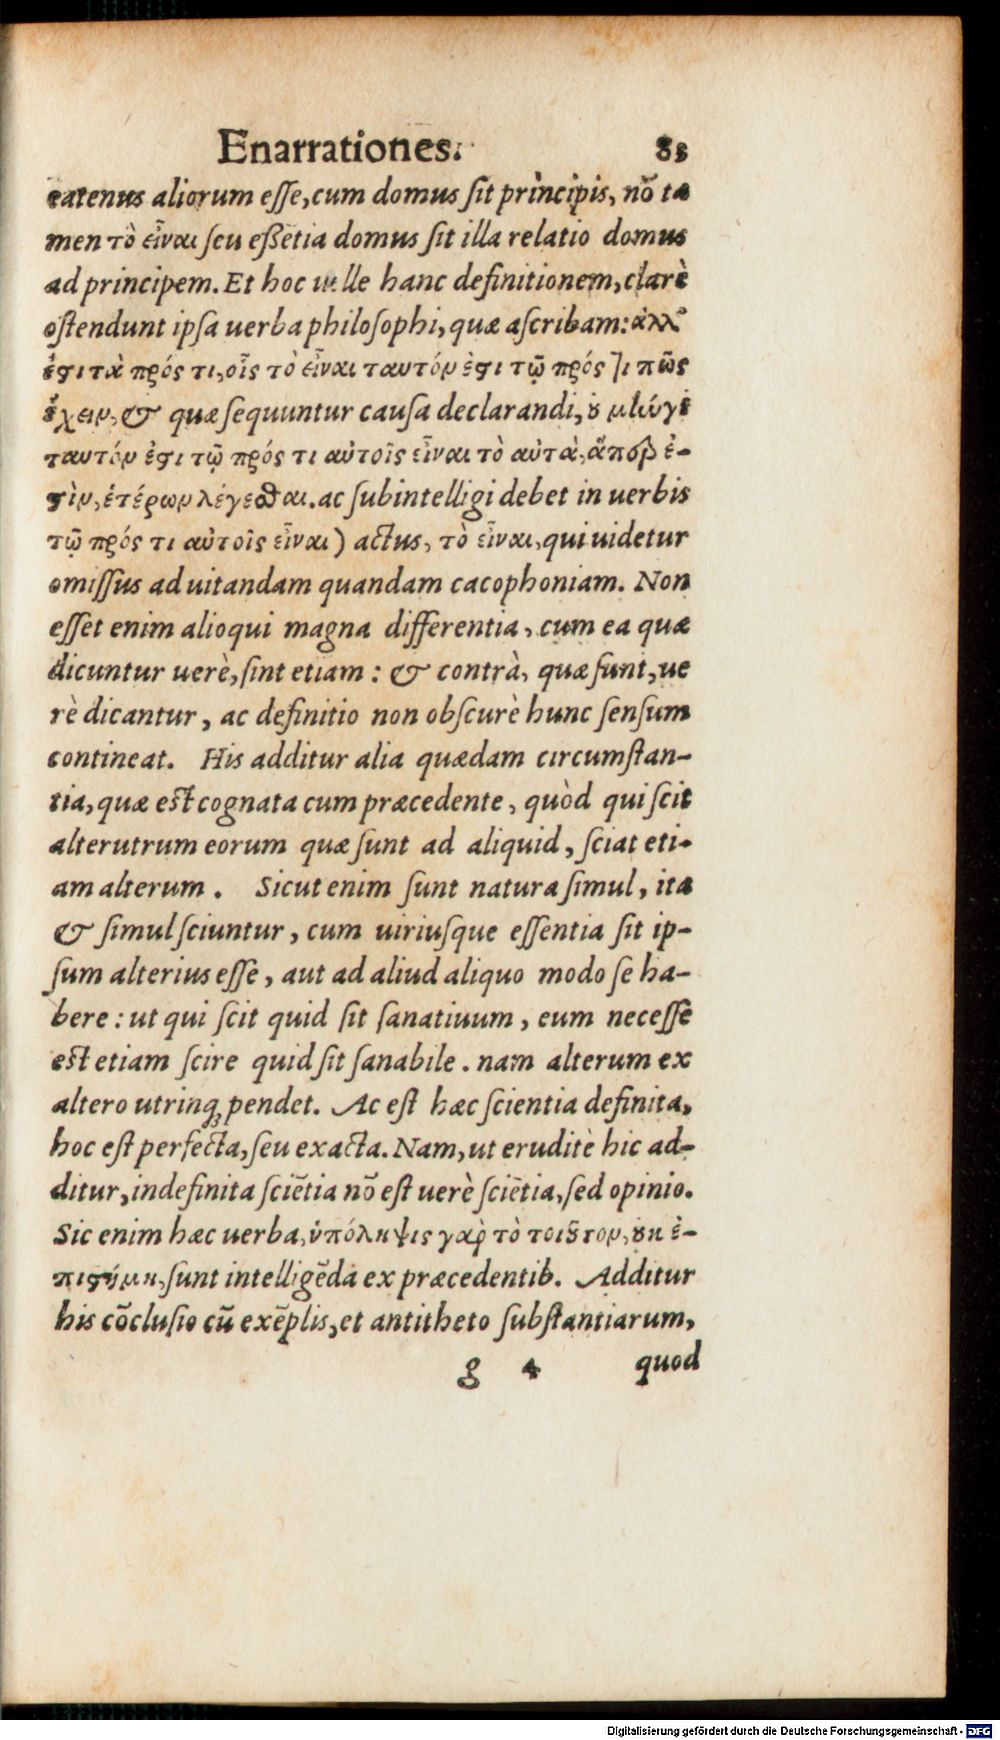 Enarrationes. 88
eatenus aliorum eſſe, cum domus ſit principis, nō ta
men τὸ εἶναι ſeu eßētia domus ſit illa relatio domus
ad principem. Et hoc uelle hanc definitionem, clarè
oſtendunt ipſa uerba philoſophi, quæ aſcribam: ἀλλ'
ἔϛι τὰ πρός τι, οἷς τὸ εἶναι ταυτόν ἐϛι τῷ πρός τι πῶς
ἔχειν, & quæ ſequuntur cauſa declarandi, ȣ μὴν γε
ταυτόν ἐϛι τῷ πρός τι αὐτοῖς εἶναι τὸ αὐτὰ, ἅπερ ἐ-
ϛὶν, ἑτέρων λέγεσθαι. ac ſubintelligi debet in uerbis
τῷ πρός τι αὐτοῖς εἶναι) actus, τὸ εἶναι, qui uidetur
omiſſus ad uitandam quandam cacophoniam. Non
eſſet enim alioqui magna differentia, cum ea quæ
dicuntur uerè, ſint etiam: & contrà, quæ ſunt, ue
rè dicantur, ac definitio non obſcurè hunc ſenſum
contineat. His additur alia quædam circumſtan-
tia, quæ eſt cognata cum præcedente, quòd qui ſcit
alterutrum eorum quæ ſunt ad aliquid, ſciat eti-
am alterum. Sicut enim ſunt natura ſimul, ita
& ſimul ſciuntur, cum utriuſque eſſentia ſit ip-
ſum alterius eſſe, aut ad aliud aliquo modo ſe ha-
bere: ut qui ſcit quid ſit ſanatiuum, eum neceſſe
eſt etiam ſcire quid ſit ſanabile. nam alterum ex
altero utrinq; pendet. Ac eſt hæc ſcientia definita,
hoc eſt perfecta, ſeu exacta. Nam, ut eruditè hic ad-
ditur, indefinita ſciētia nō eſt uerè ſciētia, ſed opinio.
Sic enim hæc uerba, ὑπόληψις γαρ τὸ τοιȣτον, ȣκ ἐ-
πιϛήμη, ſunt intelligēda ex præcedentib. Additur
his cōcluſio cū exēplis, et antitheto ſubſtantiarum,
g 4 quod
Digitalisierung gefördert durch die Deutsche Forschungsgemeinschaft - DFG